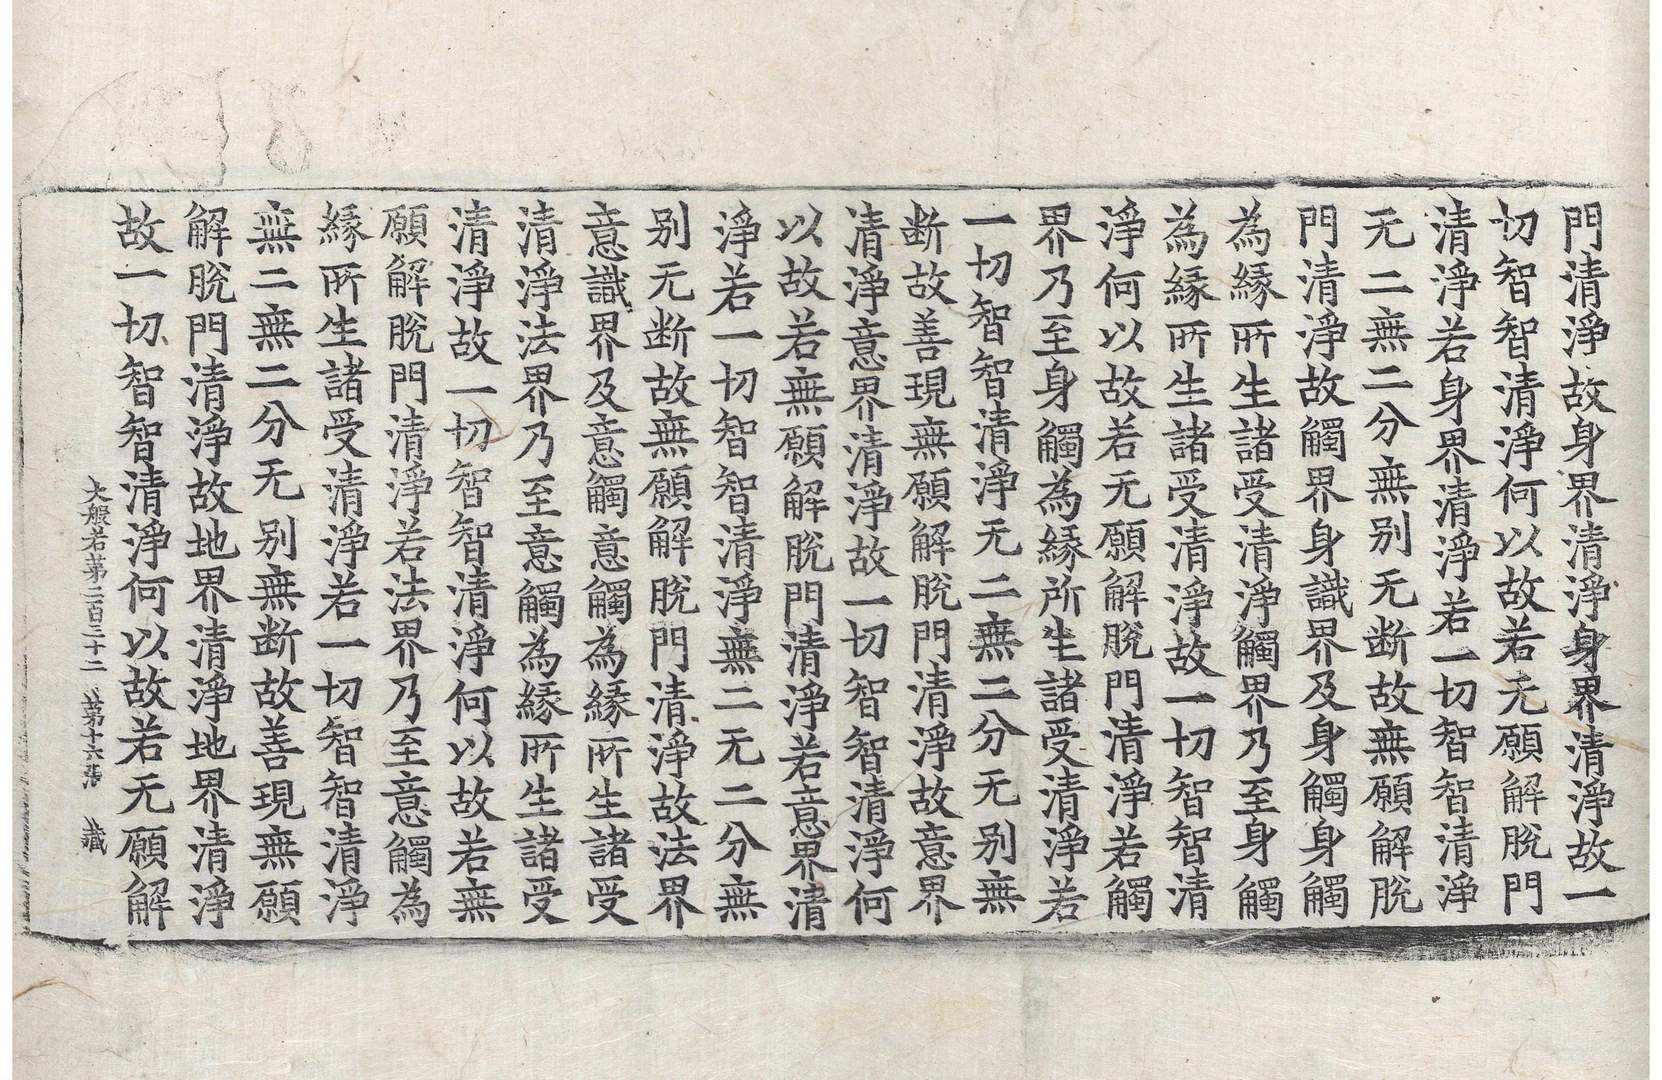 門清淨故身界清淨身界清淨故一
切智智清淨何以故若无願解脫門
清淨若身界清淨若一切智智清淨
无二無二分無别无断故無願解脫
門清淨故觸界身識界及身觸身觸
為縁所生諸受清淨觸界乃至身觸
為縁所生諸受清淨故一切智智清
淨何以故若无願解脫門清淨若觸
界乃至身觸為縁所生諸受清淨若
一切智智清淨无二無二分无别無
断故善現無願解脫門清淨故意界
清淨意界清淨故一切智智清淨何
以故若無願解脫門清淨若意界清
淨若一切智智清淨無二无二分無
别无断故無願解脫門清淨故法界
意識界及意觸意觸為縁所生諸受
清淨法界乃至意觸為縁所生諸受
清淨故一切智智清淨何以故若無
願解脫門清淨若法界乃至意觸為
縁所生諸受清淨若一切智智清淨
無二無二分无别無断故善現無願
解脫門清淨故地界清淨地界清淨
故一切智智清淨何以故若无願解
大般若第二百三十二 第十六張 藏